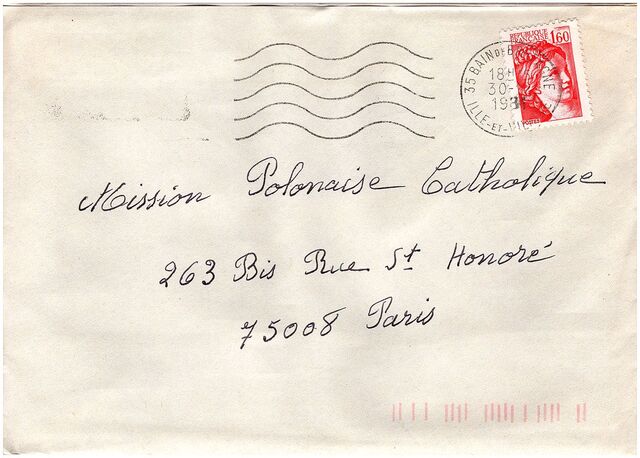 REPUBLIQUE FRANÇAISE 1,60
35 BAIN DE
18H
30-
ILLE-ET-
POSTES
Mission Polonaise Catholique
263 Bis Rue St Honoré
75008 Paris